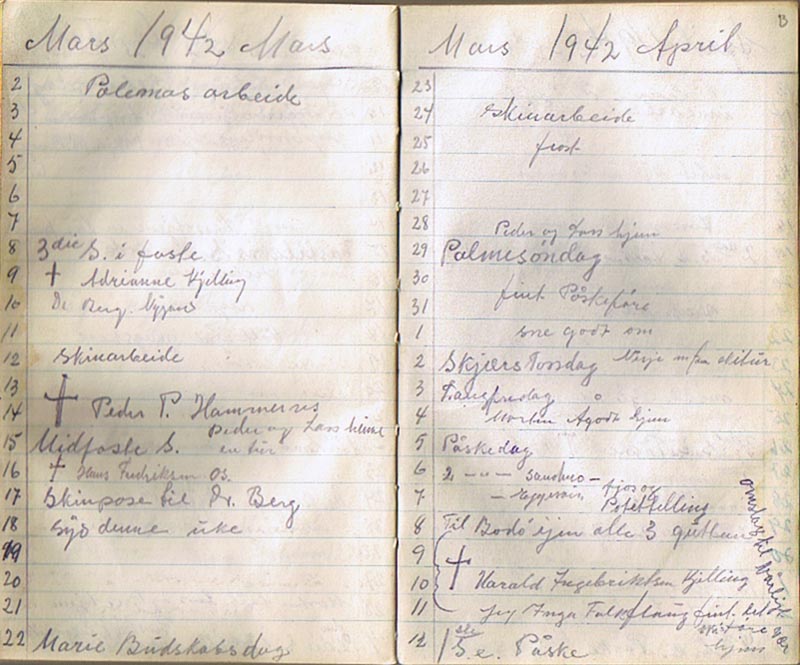 Mars 1942 Mars
2
3 Polemas arbeide
4
5
6
7
8 3die S. i faste
9 † Adrianne Kjelling
10 Dr. Berg
11
12 Skinarbeide
13
14 † Peder P. Hammernes
Peder og Lars heime
15 Midfaste S. en tur
16 † Fredriksen os.
17 Skinpose til Dr. Berg
18 Syg denne uke
19
20
21
22 Marie Budskabsdag
B
Mars 1942 April
23
24 Skinarbeide
25 frost
26
27
28 Peder og Lars hjem
29 Palmesøndag
30
31 fint Påskeføre
1 sne godt om
2 Skjærs Torsdag
3 Langfredag
4 Morten Ågodt hjem
5 Påskedag
6 2 - " -
7 fjos og
Potettelling
8 Til Bodø ijen alle 3 guttene
9
10 † Harald Ingebriktsen Kjelling
11 Jeg Inga fint
skiføre
hjem
12 1ste S. e. Påske